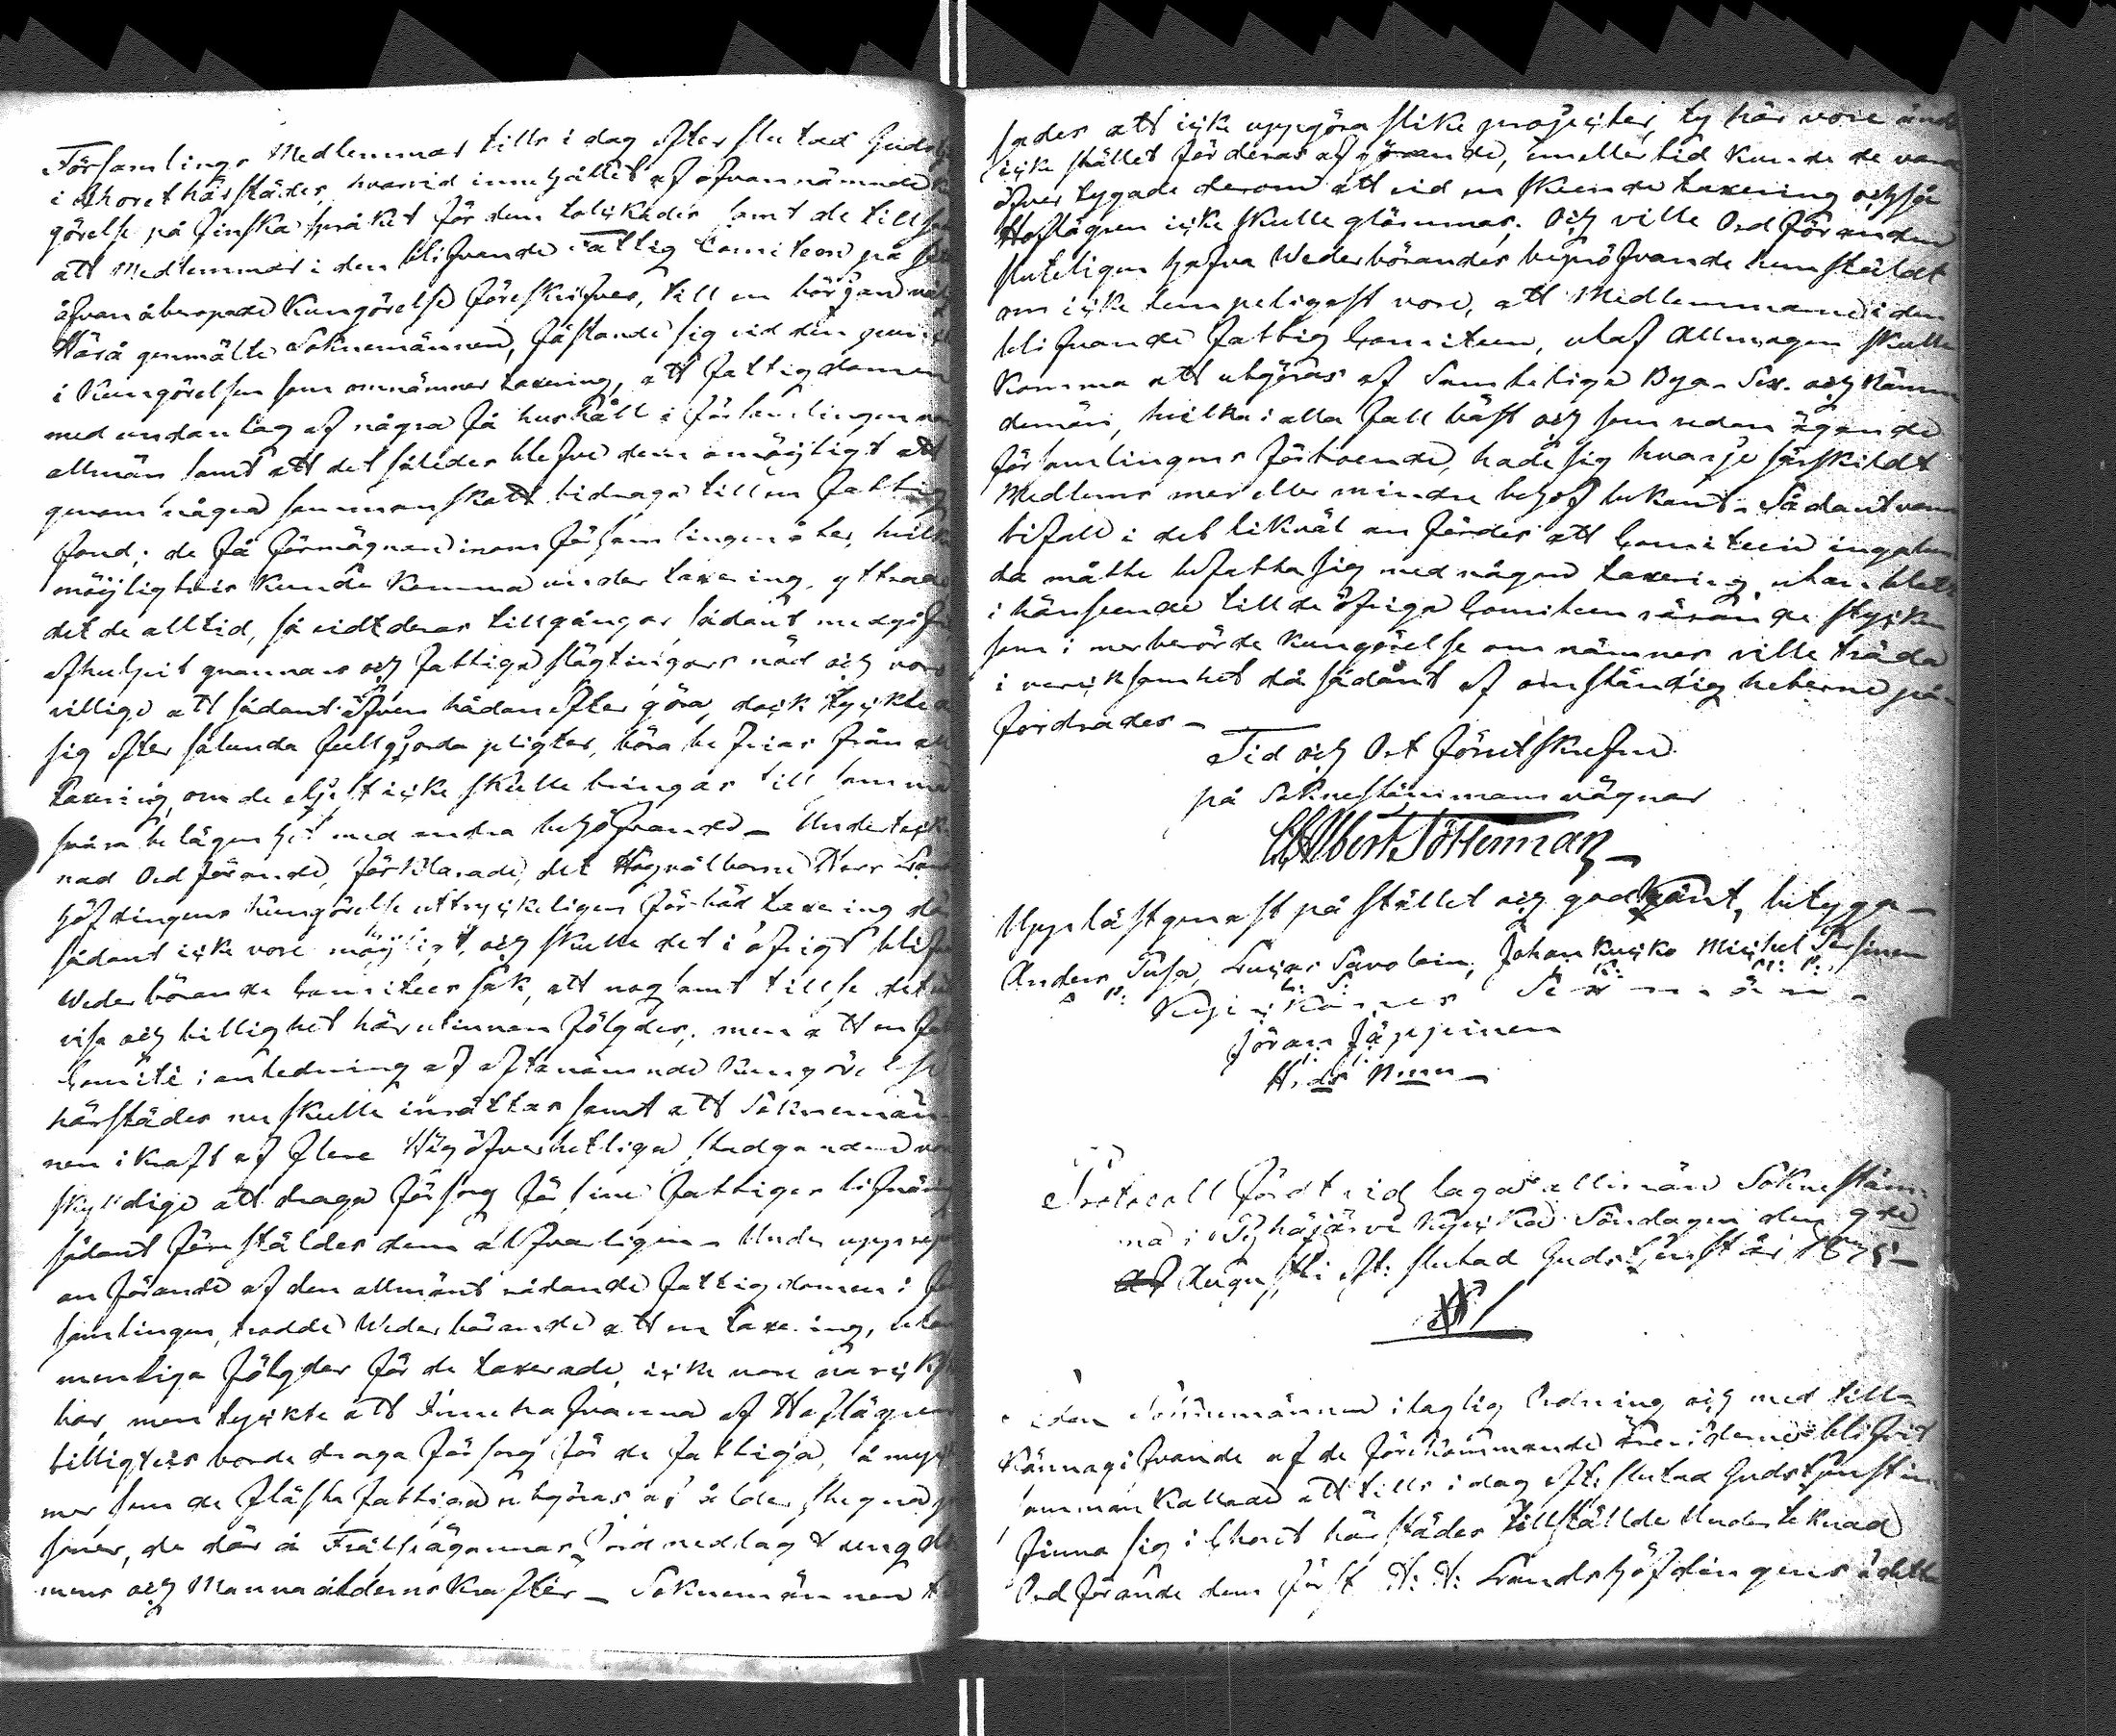 Församlings Medlemmar tills i dag efter slutad Guds
i Choret härstädes, hvarvid innehållet af ofvannämnde
görelse på finska språket för dem tolkades samt de till
att Medlemmar i den blifvande Fattig Comiteen på
åfvan åberopade Kungörelse föreskrifver, till en början
Härå genmälte Soknemännen, fästande sig vid den
i Kungörelsen som omnämner taxering, att fattigdomen
med undantag af några få hushåll i församlingen
allmän samt att det således blefve dem omöjligt att
genom några sammanskott bidraga till en Fattig
fond; de få förmögnare inom församlingen åter,
möjligtvis kunde komma under taxering, yttrade
det de alltid, så vidt deras tillgångar sådant medgifvit
afhulpit grannars och fattiga slägtingars nöd och
villige att sådant äfven hädanefter göra, dock tyckte
sig efter sålunda fullgjorda pligter, böra befrias från
taxering, om de eljest icke skulle bringas till samma
svåra belägenhet med andra behöfvande – Underteck-
nad Ordförande, förklarade, det Högvälborne Herr
höfdingens Kungörelse uttryckeligen förböd taxering då
sådant icke vore möjligt, och skulle det i öfrigt
Wederbörande Comiteers sak, att nogsamt tillse
visa och billighet härutinnan följdes; men att en
Comité i anledning af oftanämnde Kungörelse
härstädes nu skulle inrättas samt att Soknemän-
nen i kraft af flere Högöfverhetliga stadganden
skyldige att draga försorg för sine Fattigas
sådant förestäldes dem alfvarligen – Under
anförande af den allmänt rådande Fattigdomen i
samlingen, trodde Wederbörande att en taxering,
menliga följder för de taxerade, icke vore
här, men tyckte att Innehafvarena af Hoflägren
billigtvis borde draga försorg för de fattiga, så
mer som de fläste fattiga utgöras af ålderstegna
soner, de där å Frälseägarnas jord nedlagt
mens och Mannaålderns krafter – Soknemännen
sades att icke uppgöra slike projecter, ty här vore
icke stället för deras afgörande, imellertid kunde de vara
öfvertygade derom att vid en skeende taxering också
Hoflägren icke skulle glömmas. Och ville Ordföranden
sluteligen hafva Wederbörandes bepröfvande hemstäldt
om icke lempeligast vore, att Medlemmarne i den
blifvande Fattig Comiteen, utaf Allmogen skulle
komma att utgöras af Samtelige Byga-Sex. och Nämn
demän, hvilka i alla fall bäst och som redan ägande
församlingens förtroende, hade sig hvarje särskildt
Medlems mer eller mindre behof bekant. Sådant vann
bifall i det likväl anfördes att Comiteen ingalun
da måtte befatta sig med någon taxering, utan blott
i hänseende till de öfriga Comiteen rörande stycken
som i merberörde Kungörelse omnämnes ville träda
i verksamhet då sådant af omständigheterne på-
fordrades –
Tid och Ort förutskrefne
på Soknestämmans vägnar
Albert Sötterman
Uppläst genast på stället och godkänt, betyga –
Anders Tusa, Lucas Savolain, Johan Kucko Michel
Kyrckones Sexmän –
Jöran Jäppinen
H.ds N.mn –
Protocoll fördt vid laga allmän Soknestäm-
ma i Pyhäjärvi Kyrcka Söndagen den 9de
Augusti eft: slutad Gudstjenst år
Soknemännen i laglig Ordning och med till-
kännagifvande af de förekommande ärenderne blifvit
sammankallade att tills i dag eft: slutad Gudstjenst in
finna sig i Choret härstädes tillstälde Underteknad
Ordförande dem först H: H: Landshöfdingens i detta